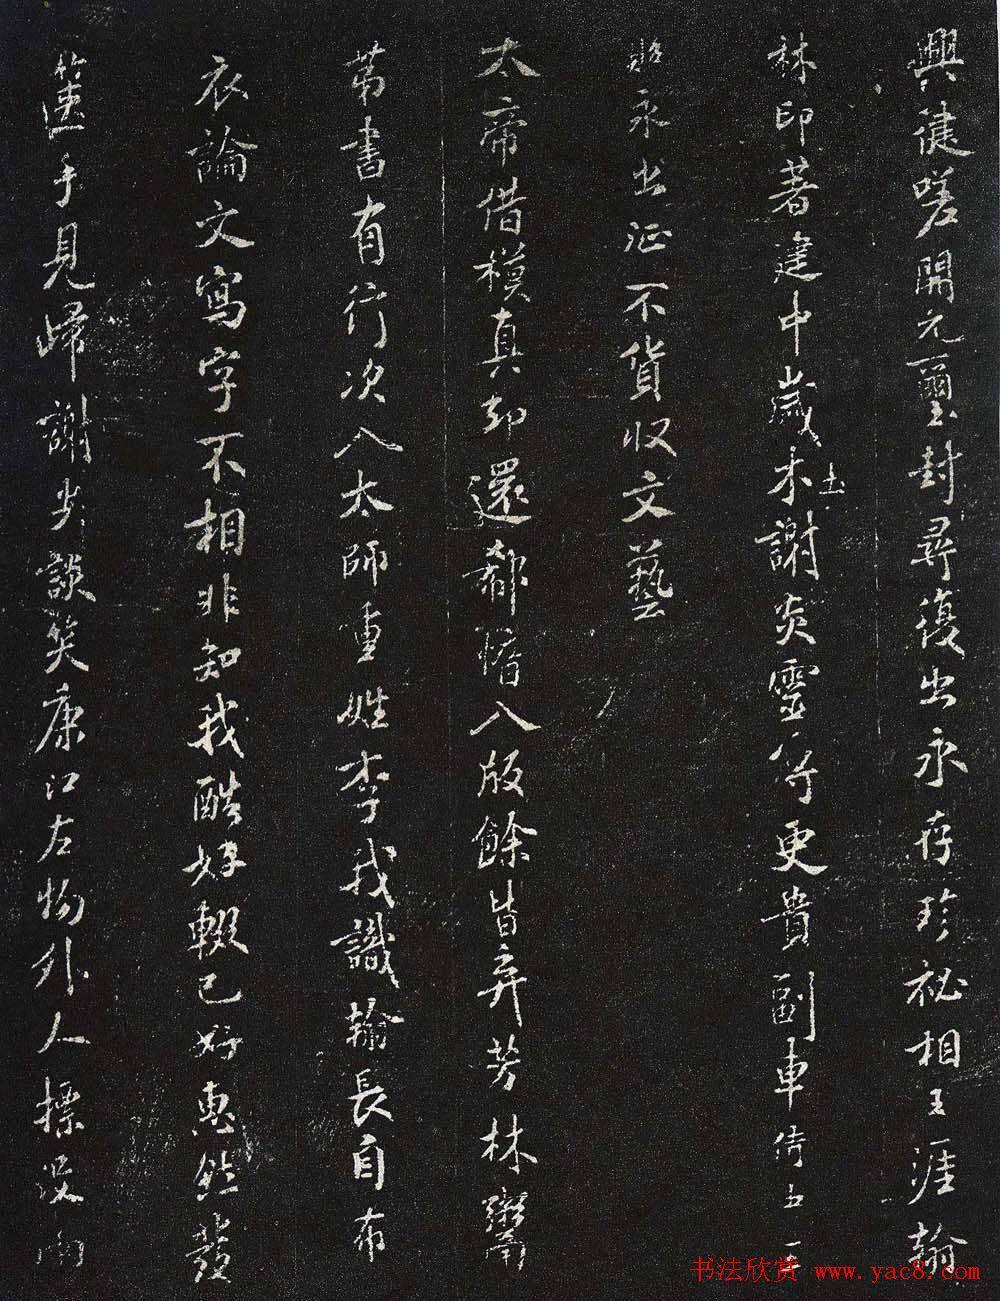 興健嗟開元璽封尋復出永存珍祕相王涯翰
林印著建中歲未謝炎靈符更貴副車五王
昭永出征不貨收文藝
太帝借模真却還郗愔八版餘皆弃芳林鬻
第書有行次入太師重姓李我識翰長自布
衣論文寫字不相非知我酷好輟己好惠然發
篋手見歸謝尚談笑康江左物外人標兩
书法欣赏 www.yac8.com